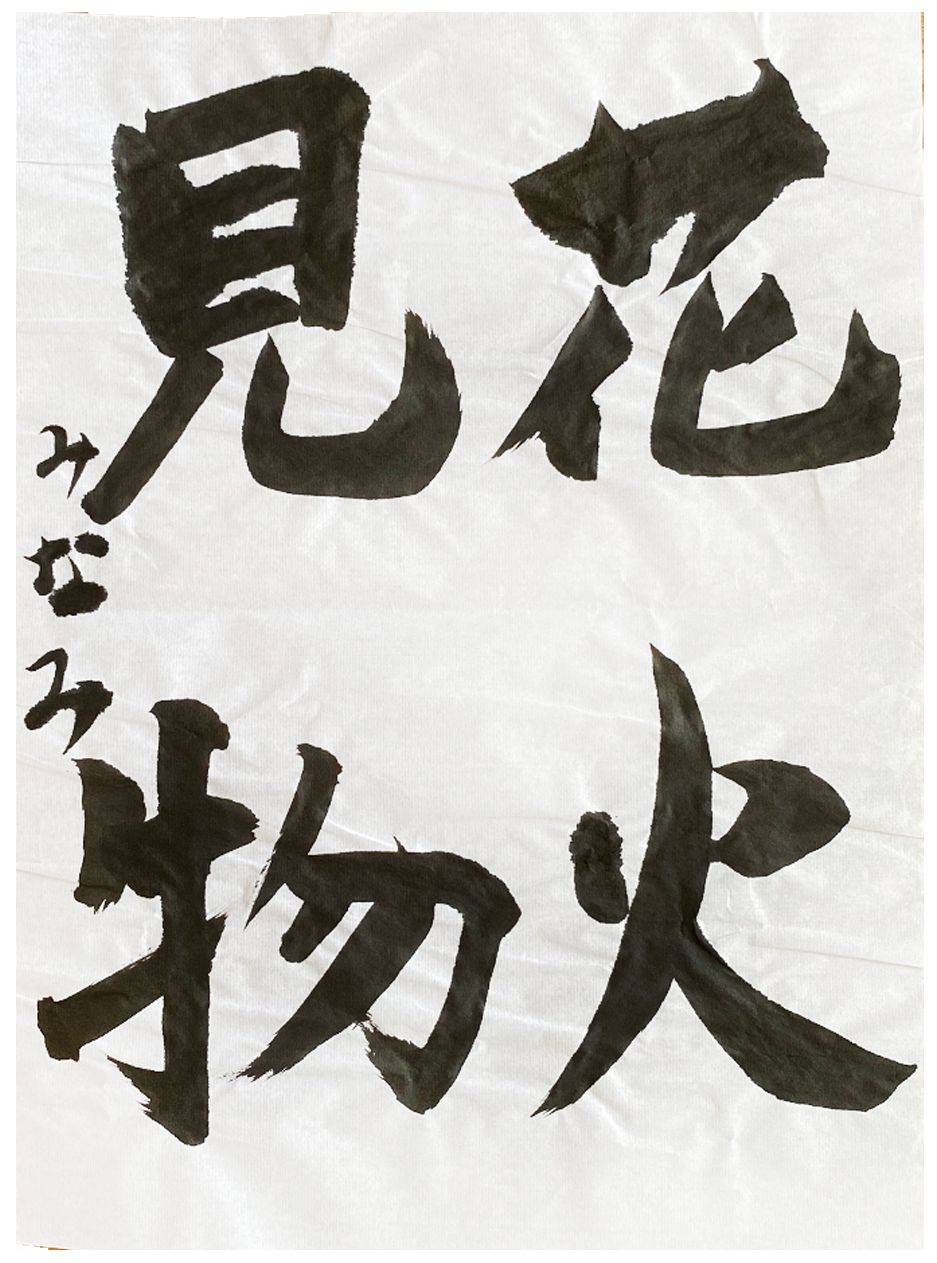 花火
見物
みなみ